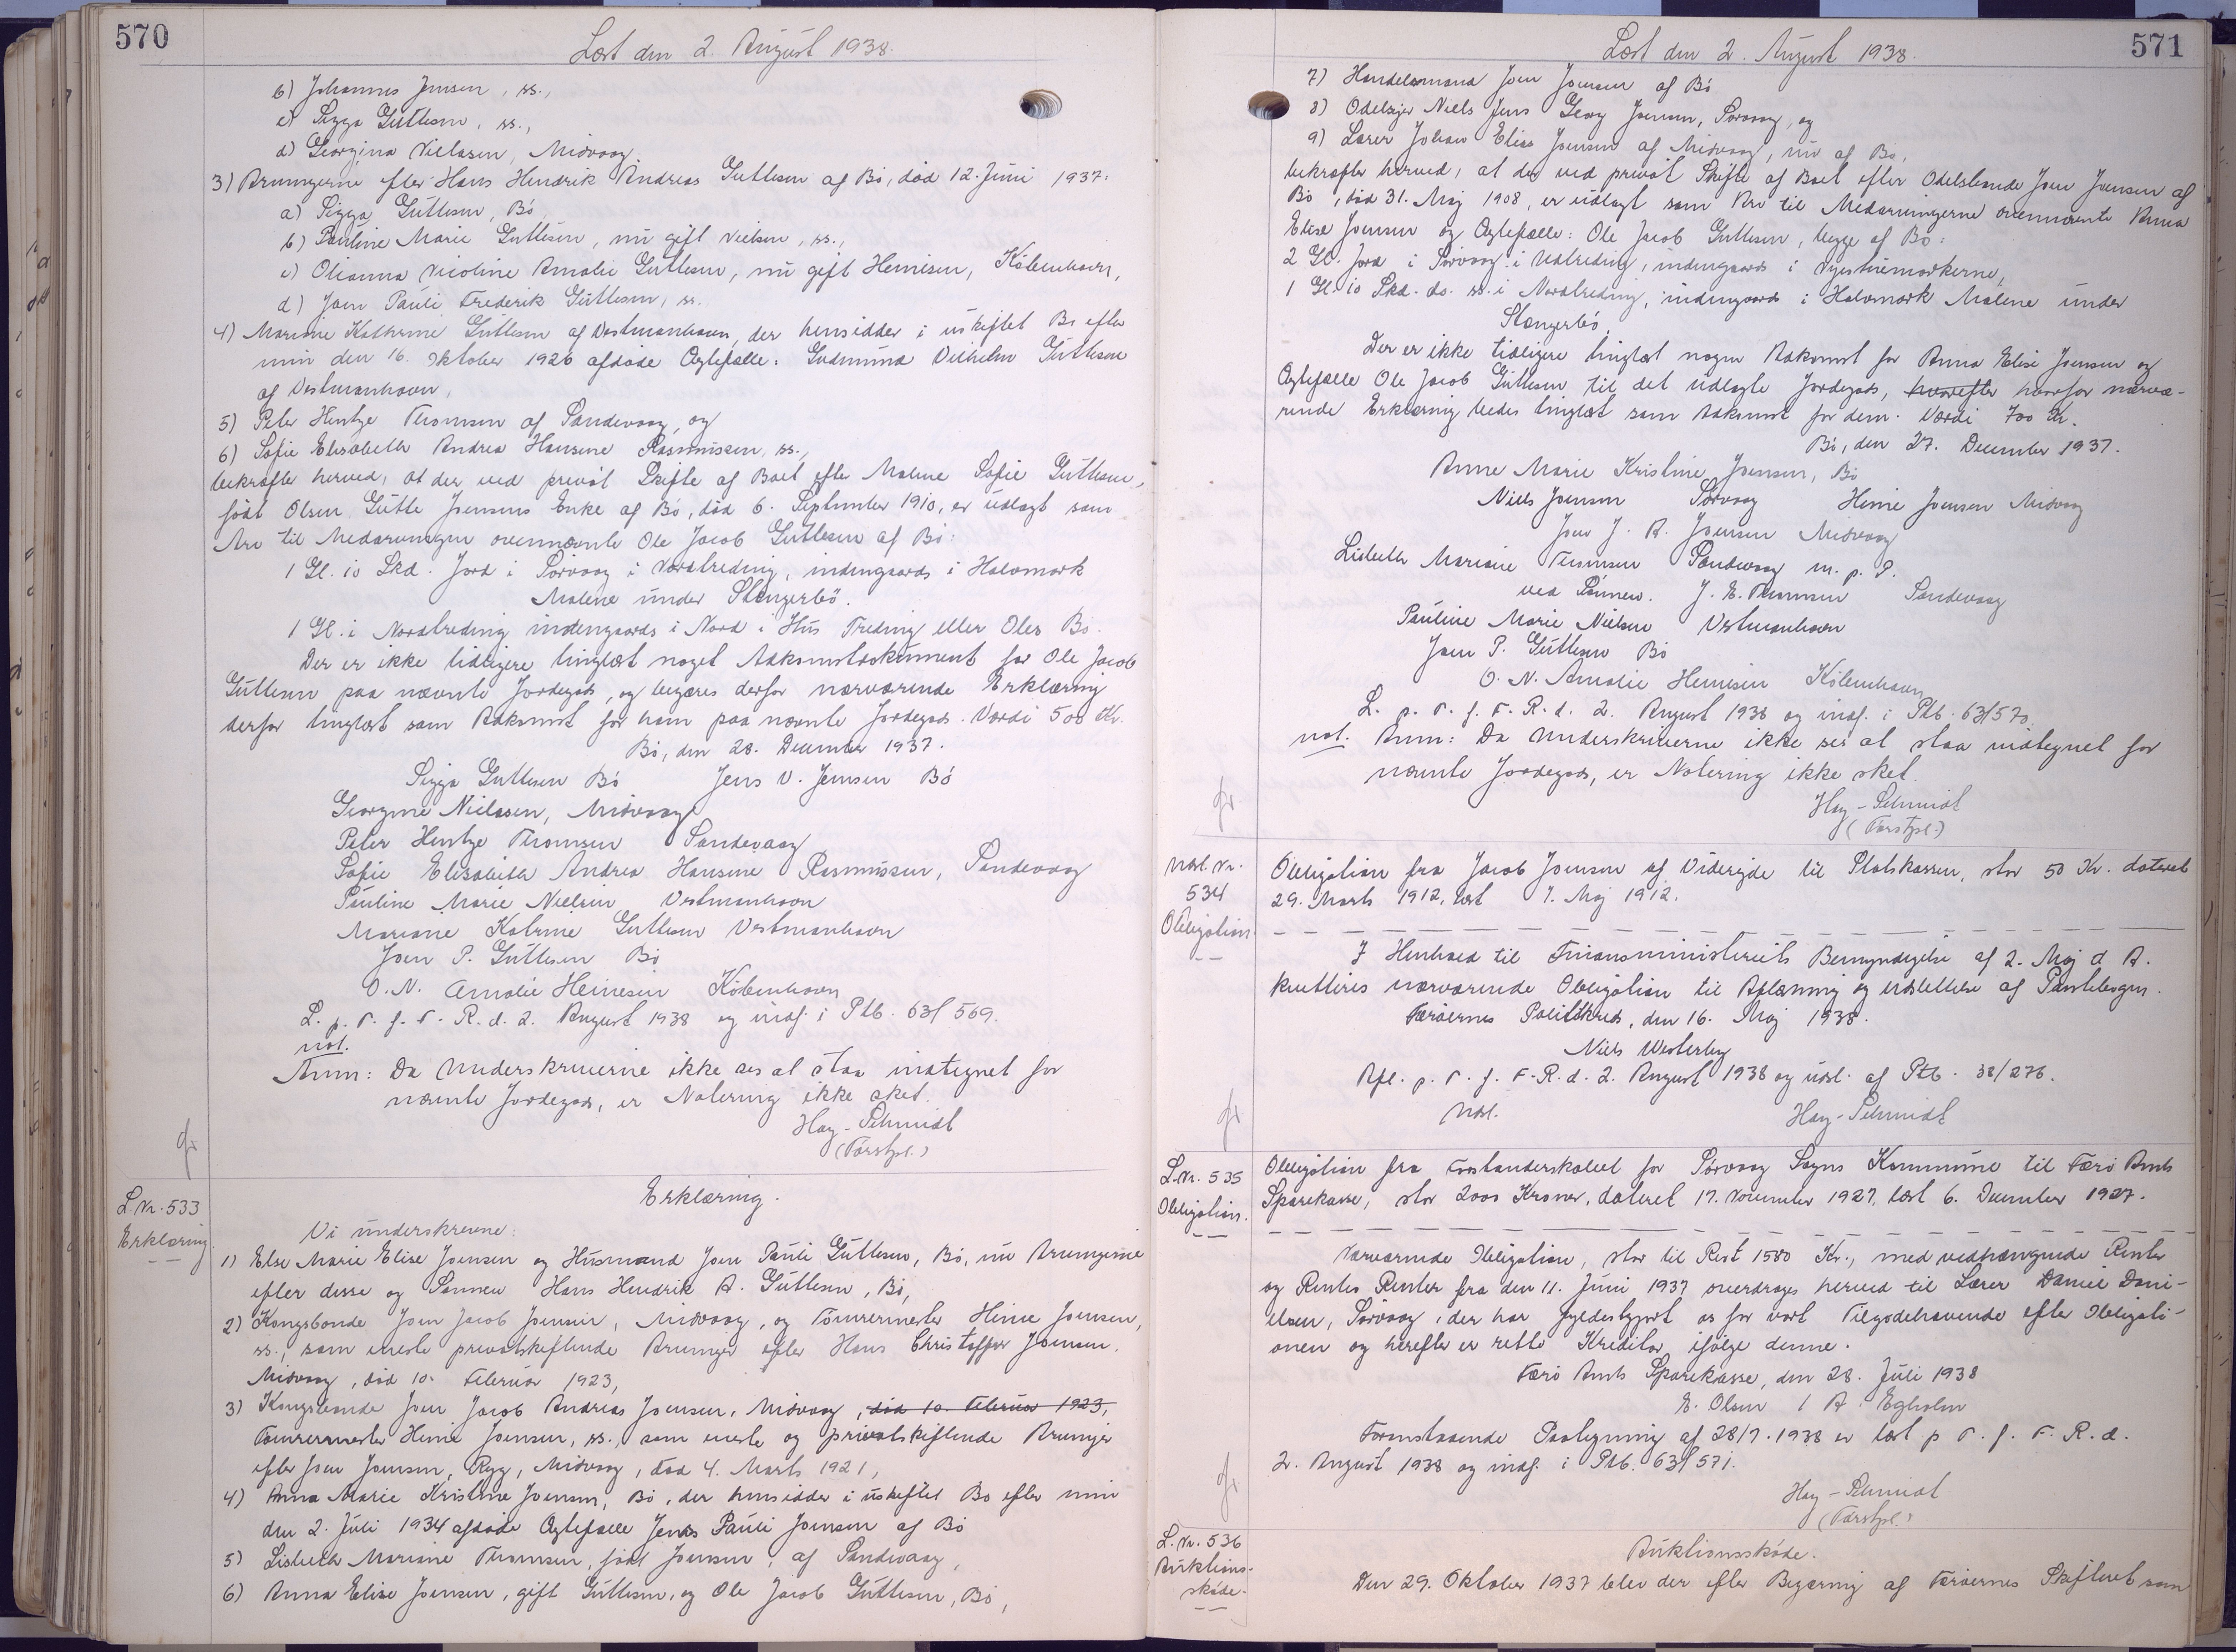 570
Læst den 2. August 1938.
b) Johannes Jensen, ss.,
c) Sigga Guttesen, ss.,
d) Georgina Nielsen, Midvaag.
3) Arvingerne efter Hans Hendrik Andreas Guttesen af Bö, död 12. Juni 1937:
a) Sigga Guttesen, Bö,
b) Pauline Marie Guttesen, nu gift Nielsen, ss.,
c) Olianna Nicoline Amalie Guttesen, nu gift Heinesen, Köbenhavn,
d) Joen Pauli Frederik Guttesen, ss.
4) Mariane Kathrine Guttesen af Vestmanhavn, der hensidder i uskiftet Bo efter
min den 16. Oktober 1926 afdöde Ægtefælle: Gudmund Vilhelm Guttesen
af Vestmanhavn,
5) Peter Hentze Thomsen af Sandevaag, og
6) Sofie Elisabeth Andrea Hansine Rasmussen, ss.,
bekræfter herved, at der ved privat Skifte af Boet efter Malene Sofie Guttesen,
födt Olsen, Gutte Joensens Enke af Bö, död 6. September 1910, er udlagt som
Arv til Medarvingen ovennævnte Ole Jacob Guttesen af Bö:
1 Gl. 10 Skd. Jord i Sörvaag i Nordtreding, indengaards i Halvmark
Malene under Stengerbö.
1 Gl. i Nordtreding indengaards i Nord i Hus Treding eller Oles Bö.
Der er ikke tidligere tinglæst noget Adkomstdokument for Ole Jacob
Guttesen paa nævnte Jordegods, og begæres derfor nærværende Erklæring
derfor tinglæst som Adkomst for ham paa nævnte Jordegods. Værdi 500 Kr.
Bö, den 28. December 1937.
Sigga Guttesen Bö Jens V. Jensen Bö
Georgine Nielsen, Midvaag
Peter Hentze Thomsen Sandevaag
Sofie Elisabeth Andrea Hansine Rasmussen, Sandevaag
Pauline Marie Nielsen Vestmanhavn
Mariane Katrine Guttesen Vestmanhavn
Joen P. Guttesen Bö
O. N. Amalie Heinesen Köbenhavn
L. p. T. f. F. R. d. 2. August 1938 og indf. i Ptb. 63/569.
not.
Anm: Da Underskriverne ikke ses at staa indtegnet for
nævnte Jordegods, er Notering ikke sket.
Hay-Schmidt
(Forstpl.)
L. Nr. 533
Erklæring
Erklæring.
Vi underskrevne:
1) Else Marie Elise Joensen og Husmand Joen Pauli Guttesen, Bö, nu Arvingerne
efter disse og Sønnen Hans Hendrik A. Guttesen, Bö,
2) Kongsbonde Joen Jacob Joensen, Midvaag, og Tömrermester Heine Joensen,
ss., som eneste privatskiftende Arvinger efter Hans Christoffer Joensen,
Midvaag, död 10. Februar 1923,
3) Kongsbonde Joen Jacob Andreas Joensen, Midvaag, död 10. Februar 1923,
Tömrermester Heine Joensen, ss., som eneste og privatskiftende Arvinger
efter Joen Joensen, Ryg, Midvaag, död 4. Marts 1921,
4) Anna Marie Kristine Joensen, Bö, der hensidder i uskiftet Bo efter min
den 2. Juli 1934 afdöde Ægtefælle Jens Pauli Joensen af Bö
5) Lisbeth Mariane Thomsen, födt Joensen, af Sandevaag,
6) Anna Elise Joensen, gift Guttesen, og Ole Jacob Guttesen, Bö,
571
Læst den 2. August 1938.
7) Handelsmand Joen Joensen af Bö
8) Odelsejer Niels Jens Georg Joensen, Sörvaag, og
9) Lærer Johan Elias Joensen af Midvaag, nu af Bö,
bekræfter herved, at der ved privat Skifte af Boet efter Odelsbonde Joen Joensen af
Bö, död 31. Maj 1908, er udlagt som Arv til Medarvingerne ovennævnte Anna
Elise Joensen og Ægtefælle: Ole Jacob Guttesen, begge af Bö:
2 Gl. Jord i Sörvaag i Udtreding, indengaards i Nyestuemarkerne,
1 Gl. 10 Skd. do. ss. i Nordtreding, indengaards i Halvmark Malene under
Stengerbö.
Der er ikke tidligere tinglæst nogen Adkomst for Anna Elise Joensen og
Ægtefælle Ole Jacob Guttesen til det udlagte Jordegods, hvorefter hvorfor nærvæ-
rende Erklæring bedes tinglæst som Adkomst for dem. Værdi 700 Kr.
Bö, den 27. December 1937.
Anne Marie Kristine Joensen, Bö
Niels Joensen Sörvaag Heine Joensen Midvaag
Joen J. A. Joensen Midvaag
Lisbeth Mariane Thomsen Sandevaag m. p. P.
ved Sönnen. J. E. Thomsen Sandevaag
Pauline Marie Nielsen Vestmanhavn
Joen P. Guttesen Bö
O. N. Amalie Heinesen Köbenhavn
L. p. T. f. F. R. d. 2. August 1938 og indf. i Ptb. 63/570.
not. Anm: Da Underskriverne ikke ses at staa indtegnet for
nævnte Jordegods, er Notering ikke sket.
Hay-Schmidt
(Forstpl.)
Udsl. Nr.
534
Obligation
Obligation fra Jacob Joensen af Videreide til Statskassen, stor 50 Kr. dateret
29. Marts 1912, læst 7. Maj 1912.
I Henhold til Finansministeriets Bemyndigelse af 2. Maj d. A.
kvitteres nærværende Obligation til Aflæsning og Udslettelse af Pantebogen.
Færöernes Politikreds, den 16. Maj 1938.
Niels Westerby
Afl. p. T. f. F. R. d. 2. August 1938 og udsl. af Ptb. 38/276.
Udsl. Hay-Schmidt
L. Nr. 535
Obligation.
Obligation fra Forstanderskabet for Sörvaag Sogns Kommune til Færö Amts
Sparekasse, stor 2000 Kroner, dateret 17. November 1927, læst 6. December 1927.
Nærværende Obligation, stor til Rest 1580 Kr., med vedhængende Renter
og Rentes Renter fra den 11. Juni 1937 overdrages herved til Lærer Daniel Dani-
elsen, Sörvaag, der har fyldestgjort os for vort Tilgodehavende efter Obligati-
onen og herefter er rette Kreditor ifölge denne.
Færö Amts Sparekasse, den 28. Juli 1938
E. Olsen / A. Egholm
Foranstaaende Paategning af 28/7. 1938 er læst p. T. f. F. R. d.
2. August 1938 og indf. i Ptb. 63/571.
Hay-Schmidt
(Forstpl.)
L. Nr. 536
Auktions-
sköde.
Auktionssköde.
Den 29. Oktober 1937 blev der efter Begæring af Færöernes Skifteret som